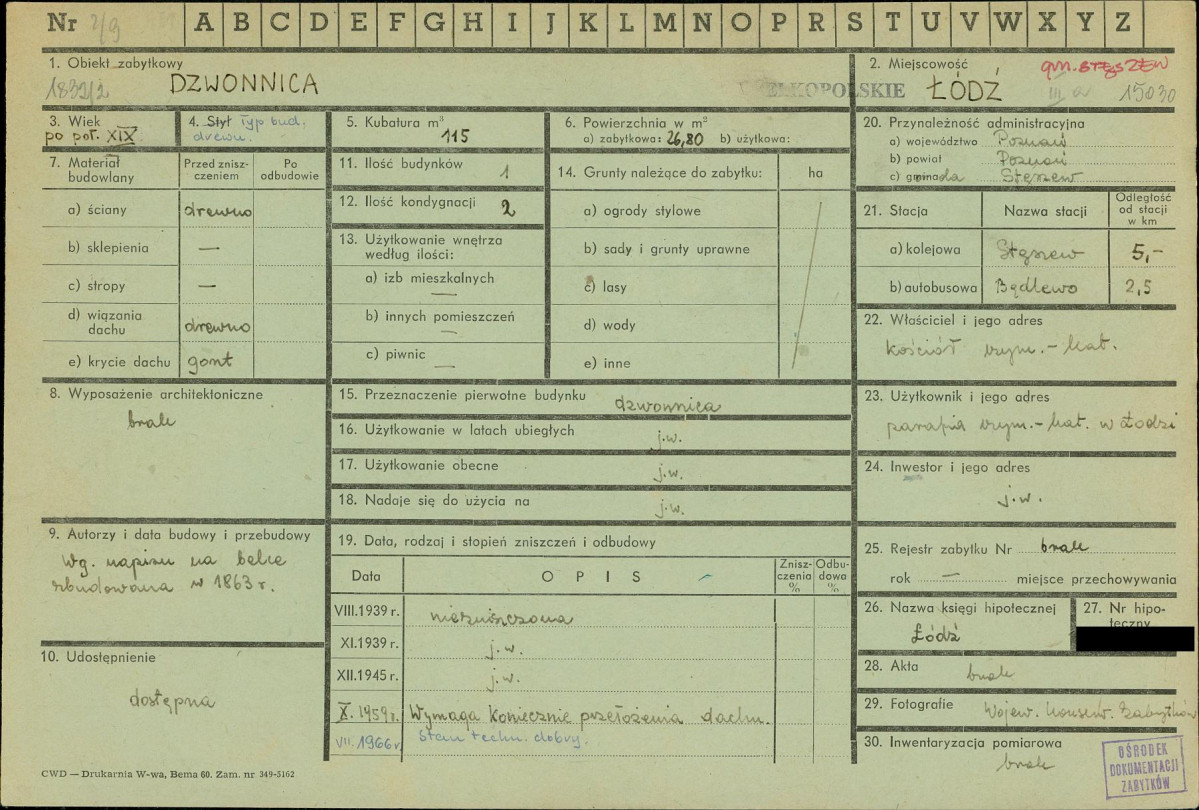 Nr 7/9 A B C D E F G H I J K L M N O P R S T U V W X Y Z
1. Obiekt zabytkowy
1832/2 DZWONNICA
ELKOPOLSKIE
2. Miejscowość gm. STĘSZEW
ŁÓDŹ III a 15030
3. Wiek
po poł. XIX
4. Styl Typ bud.
drewn.
5. Kubatura m³
115
6. Powierzchnia w m²
a) zabytkowa: 26,80 b) użytkowa:
7. Materiał budowlany
Przed zniszczeniem
Po odbudowie
a) ściany drewno
b) sklepienia —
c) stropy —
d) wiązania dachu drewno
e) krycie dachu gont
8. Wyposażenie architektoniczne
brak
9. Autorzy i data budowy i przebudowy
Wg. napisu na belce
zbudowana w 1863 r.
10. Udostępnienie
dostępna
11. Ilość budynków 1
12. Ilość kondygnacji 2
13. Użytkowanie wnętrza
według ilości:
a) izb mieszkalnych
—
b) innych pomieszczeń
—
c) piwnic
—
14. Grunty należące do zabytku: ha
a) ogrody stylowe
b) sady i grunty uprawne
c) lasy
d) wody
e) inne
15. Przeznaczenie pierwotne budynku dzwonnica
16. Użytkowanie w latach ubiegłych j.w.
17. Użytkowanie obecne j.w.
18. Nadaje się do użycia na j.w.
19. Data, rodzaj i stopień zniszczeń i odbudowy
Data OPIS Zniszczenia % Odbudowa %
VIII.1939 r. niezniszczona
XI.1939 r. j.w.
XII.1945 r. j.w.
X. 1959 r. Wymaga koniecznie przełożenia dachu.
VII. 1966 r. Stan techn. dobry.
20. Przynależność administracyjna
a) województwo Poznań
b) powiat Poznań
c) gmina Stęszew
21. Stacja Nazwa stacji Odległość od stacji w km
a) kolejowa Stęszew 5,-
b) autobusowa Będlewo 2,5
22. Właściciel i jego adres
kościół rzym.-kat.
23. Użytkownik i jego adres
parafia rzym.-kat. w Łodzi
24. Inwestor i jego adres
j.w.
25. Rejestr zabytku Nr brak
rok — miejsce przechowywania
26. Nazwa księgi hipotecznej
Łódź
27. Nr hipoteczny
28. Akta brak
29. Fotografie Wojew. Konserw. Zabytków
30. Inwentaryzacja pomiarowa
brak
OŚRODEK
DOKUMENTACJI
ZABYTKÓW
CWD — Drukarnia W-wa, Bema 60. Zam. nr 349-5162